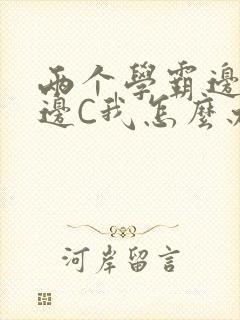 兩个學霸邊
邊C我怎麼
河岸留言